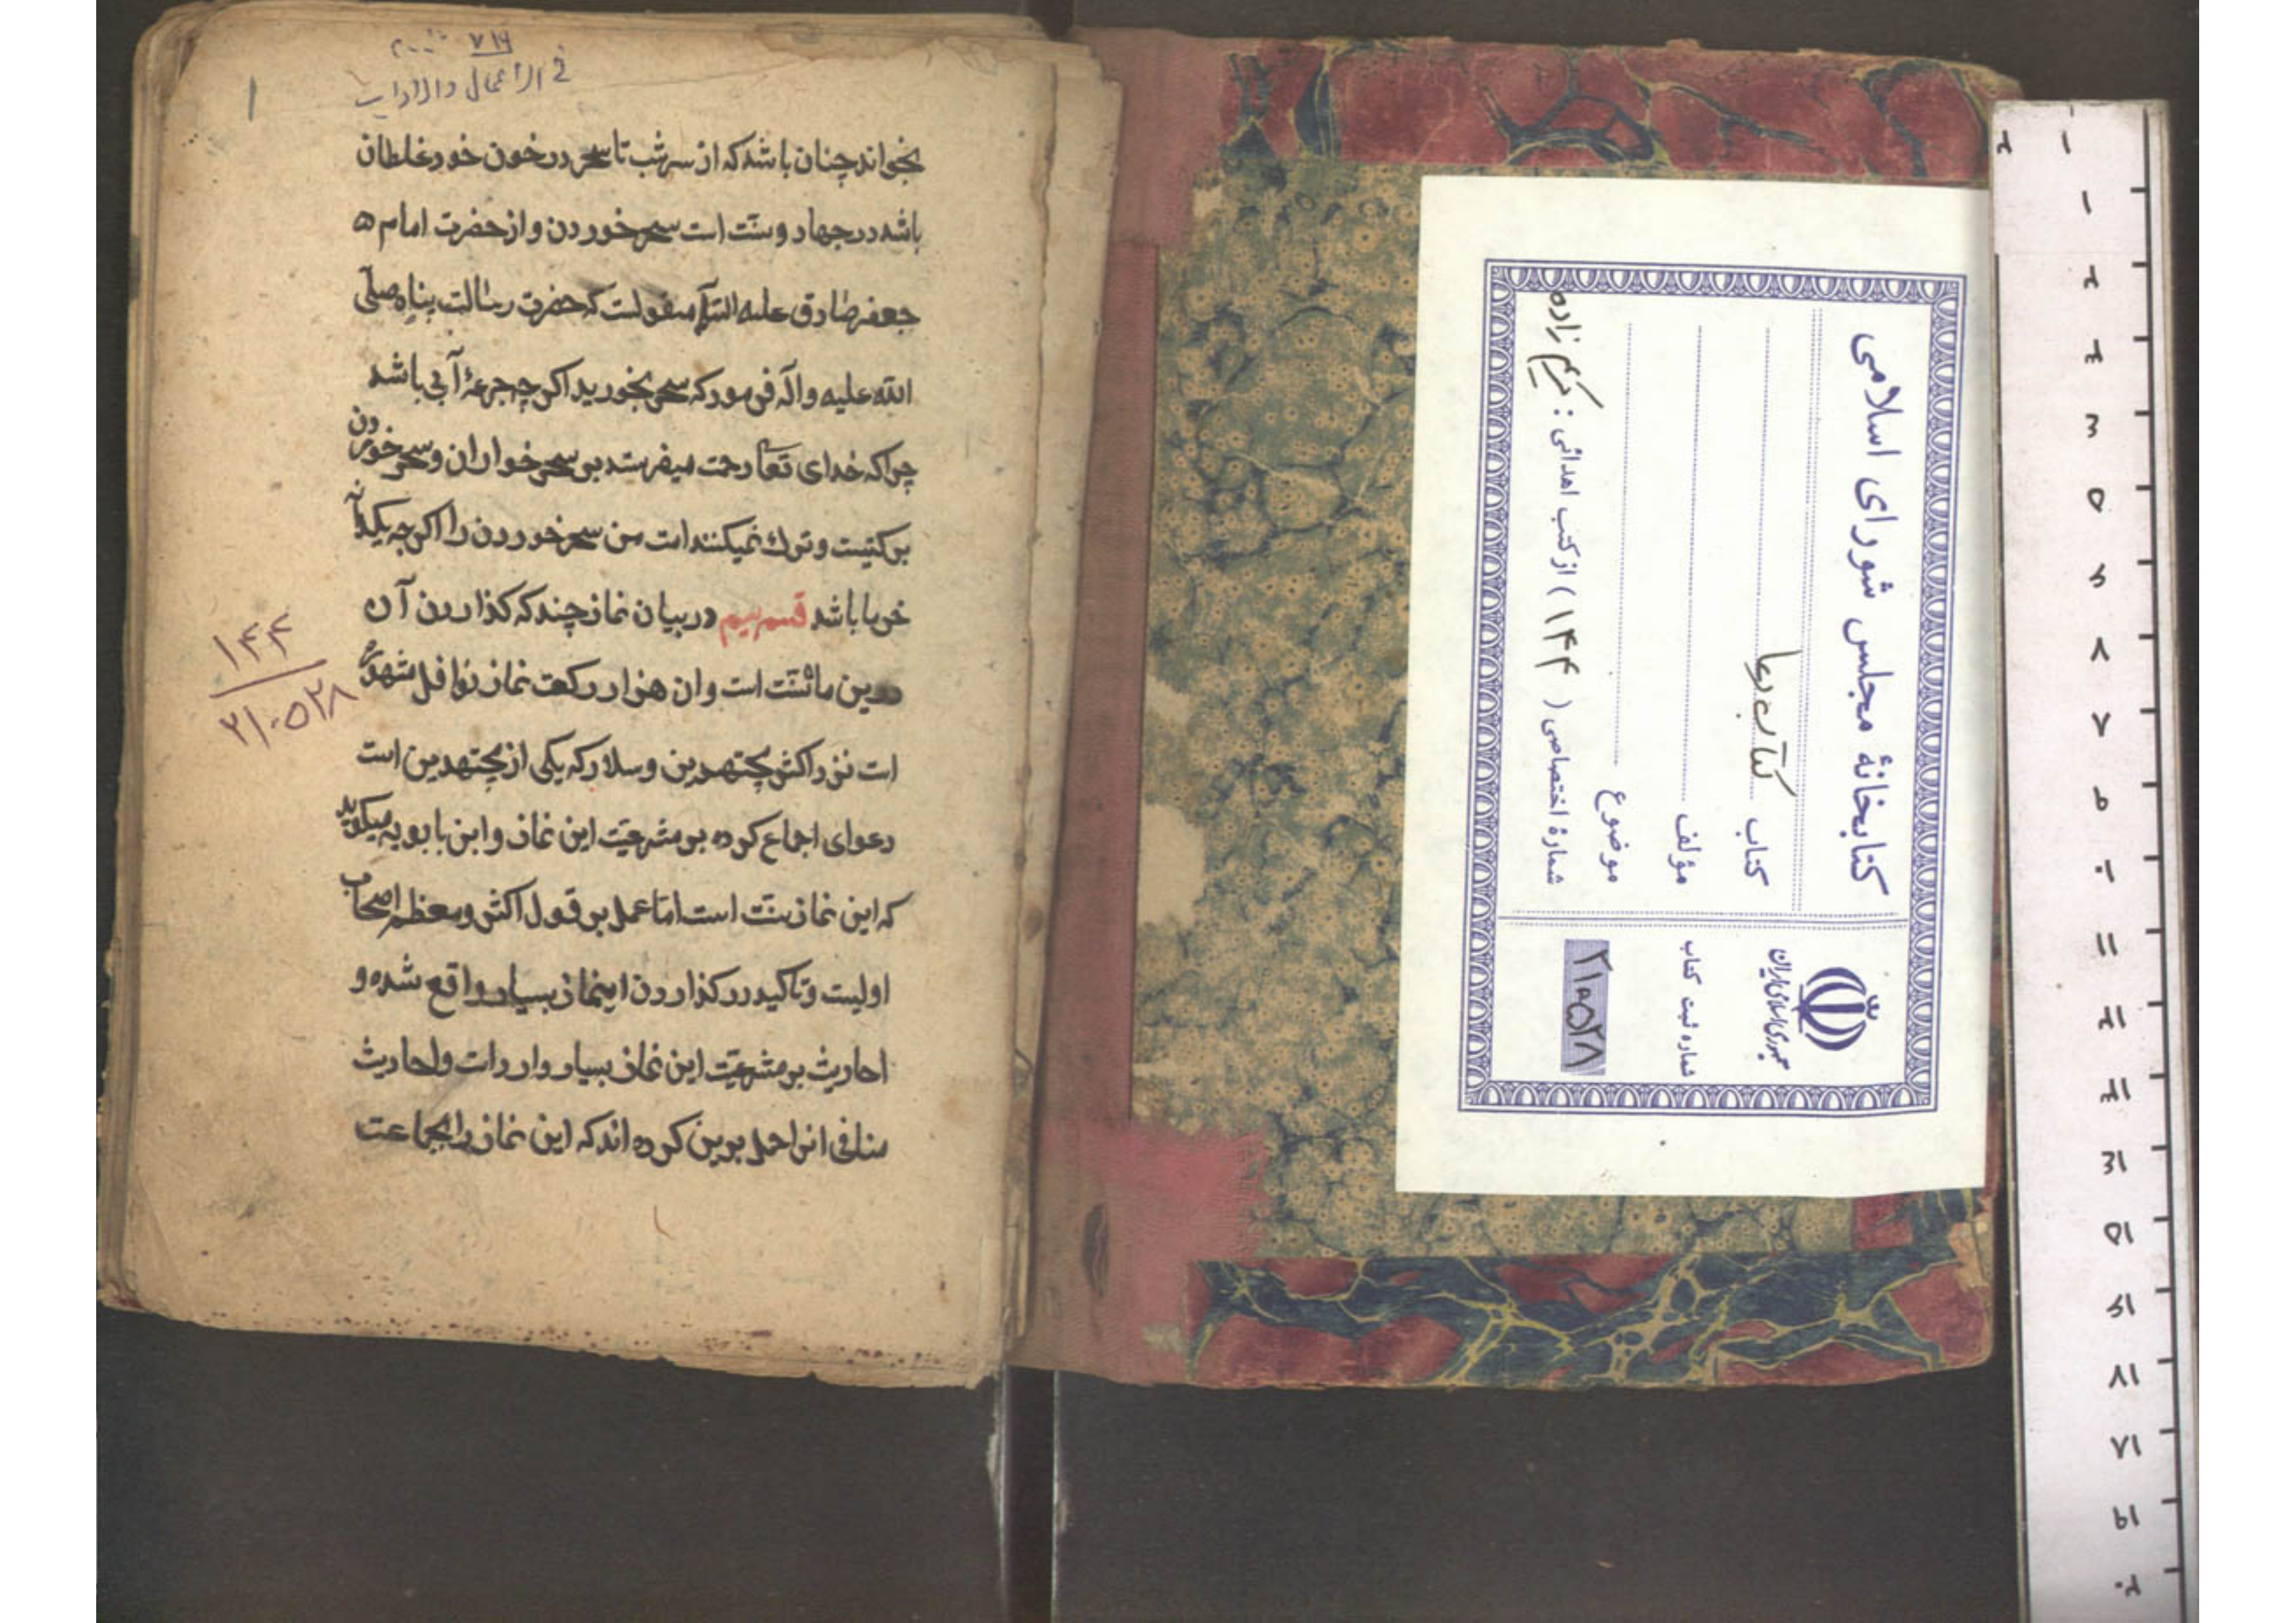 ۷۱۶
فی الأعمال والآداب
۱
بخواند چنان باشد که از سر شب تا سحر در خون خود غلطان
باشد در جهاد و سنت است سحر خوردن و از حضرت امام
جعفر صادق علیه السلام منقولست که حضرت رسالت پناه صلی
الله علیه و آله فرمود که سحر بخورید اگر چه جرعهٔ آبی باشد
چرا که خدای تعا رحمت میفرستد بر سحر خواران و سحر خوردن
برکتیست و ترک نمیکنند امت من سحر خوردن را اگر چه یکدانه
خرما باشد قسم سیم در بیان نماز چند که گذاردن آن
درین ماه سنت است و ان هزار رکعت نماز نوافل شهر
است نزد اکثر مجتهدین و سلار که یکی از مجتهدین است
دعوای اجماع کرده بر مشرعیت این نماز و ابن بابویه میگوید
که این نماز سنت است اما عمل بر قول اکثر و معظم اصحاب
اولیست و تاکید در گذاردن اینماز بسیار واقع شده و
احادیث بر مشرعیت این نماز بسیار وارد است و احادیث
منافی انرا حمل برین کرده اند که این نماز را بجماعت
۱۴۴
۲۱۰۵۲۸
کتابخانهٔ مجلس شورای اسلامی
کتاب کتاب دعا
مؤلف
موضوع
شمارهٔ اختصاصی ( ۱۴۴ ) از کتب اهدائی : کریم زاده
جمهوری اسلامی ایران
شماره ثبت کتاب
۲۱۰۵۲۸
۱
۲
۳
۴
۵
۶
۷
۸
۹
۱۰
۱۱
۱۲
۱۳
۱۴
۱۵
۱۶
۱۷
۱۸
۱۹
۲۰